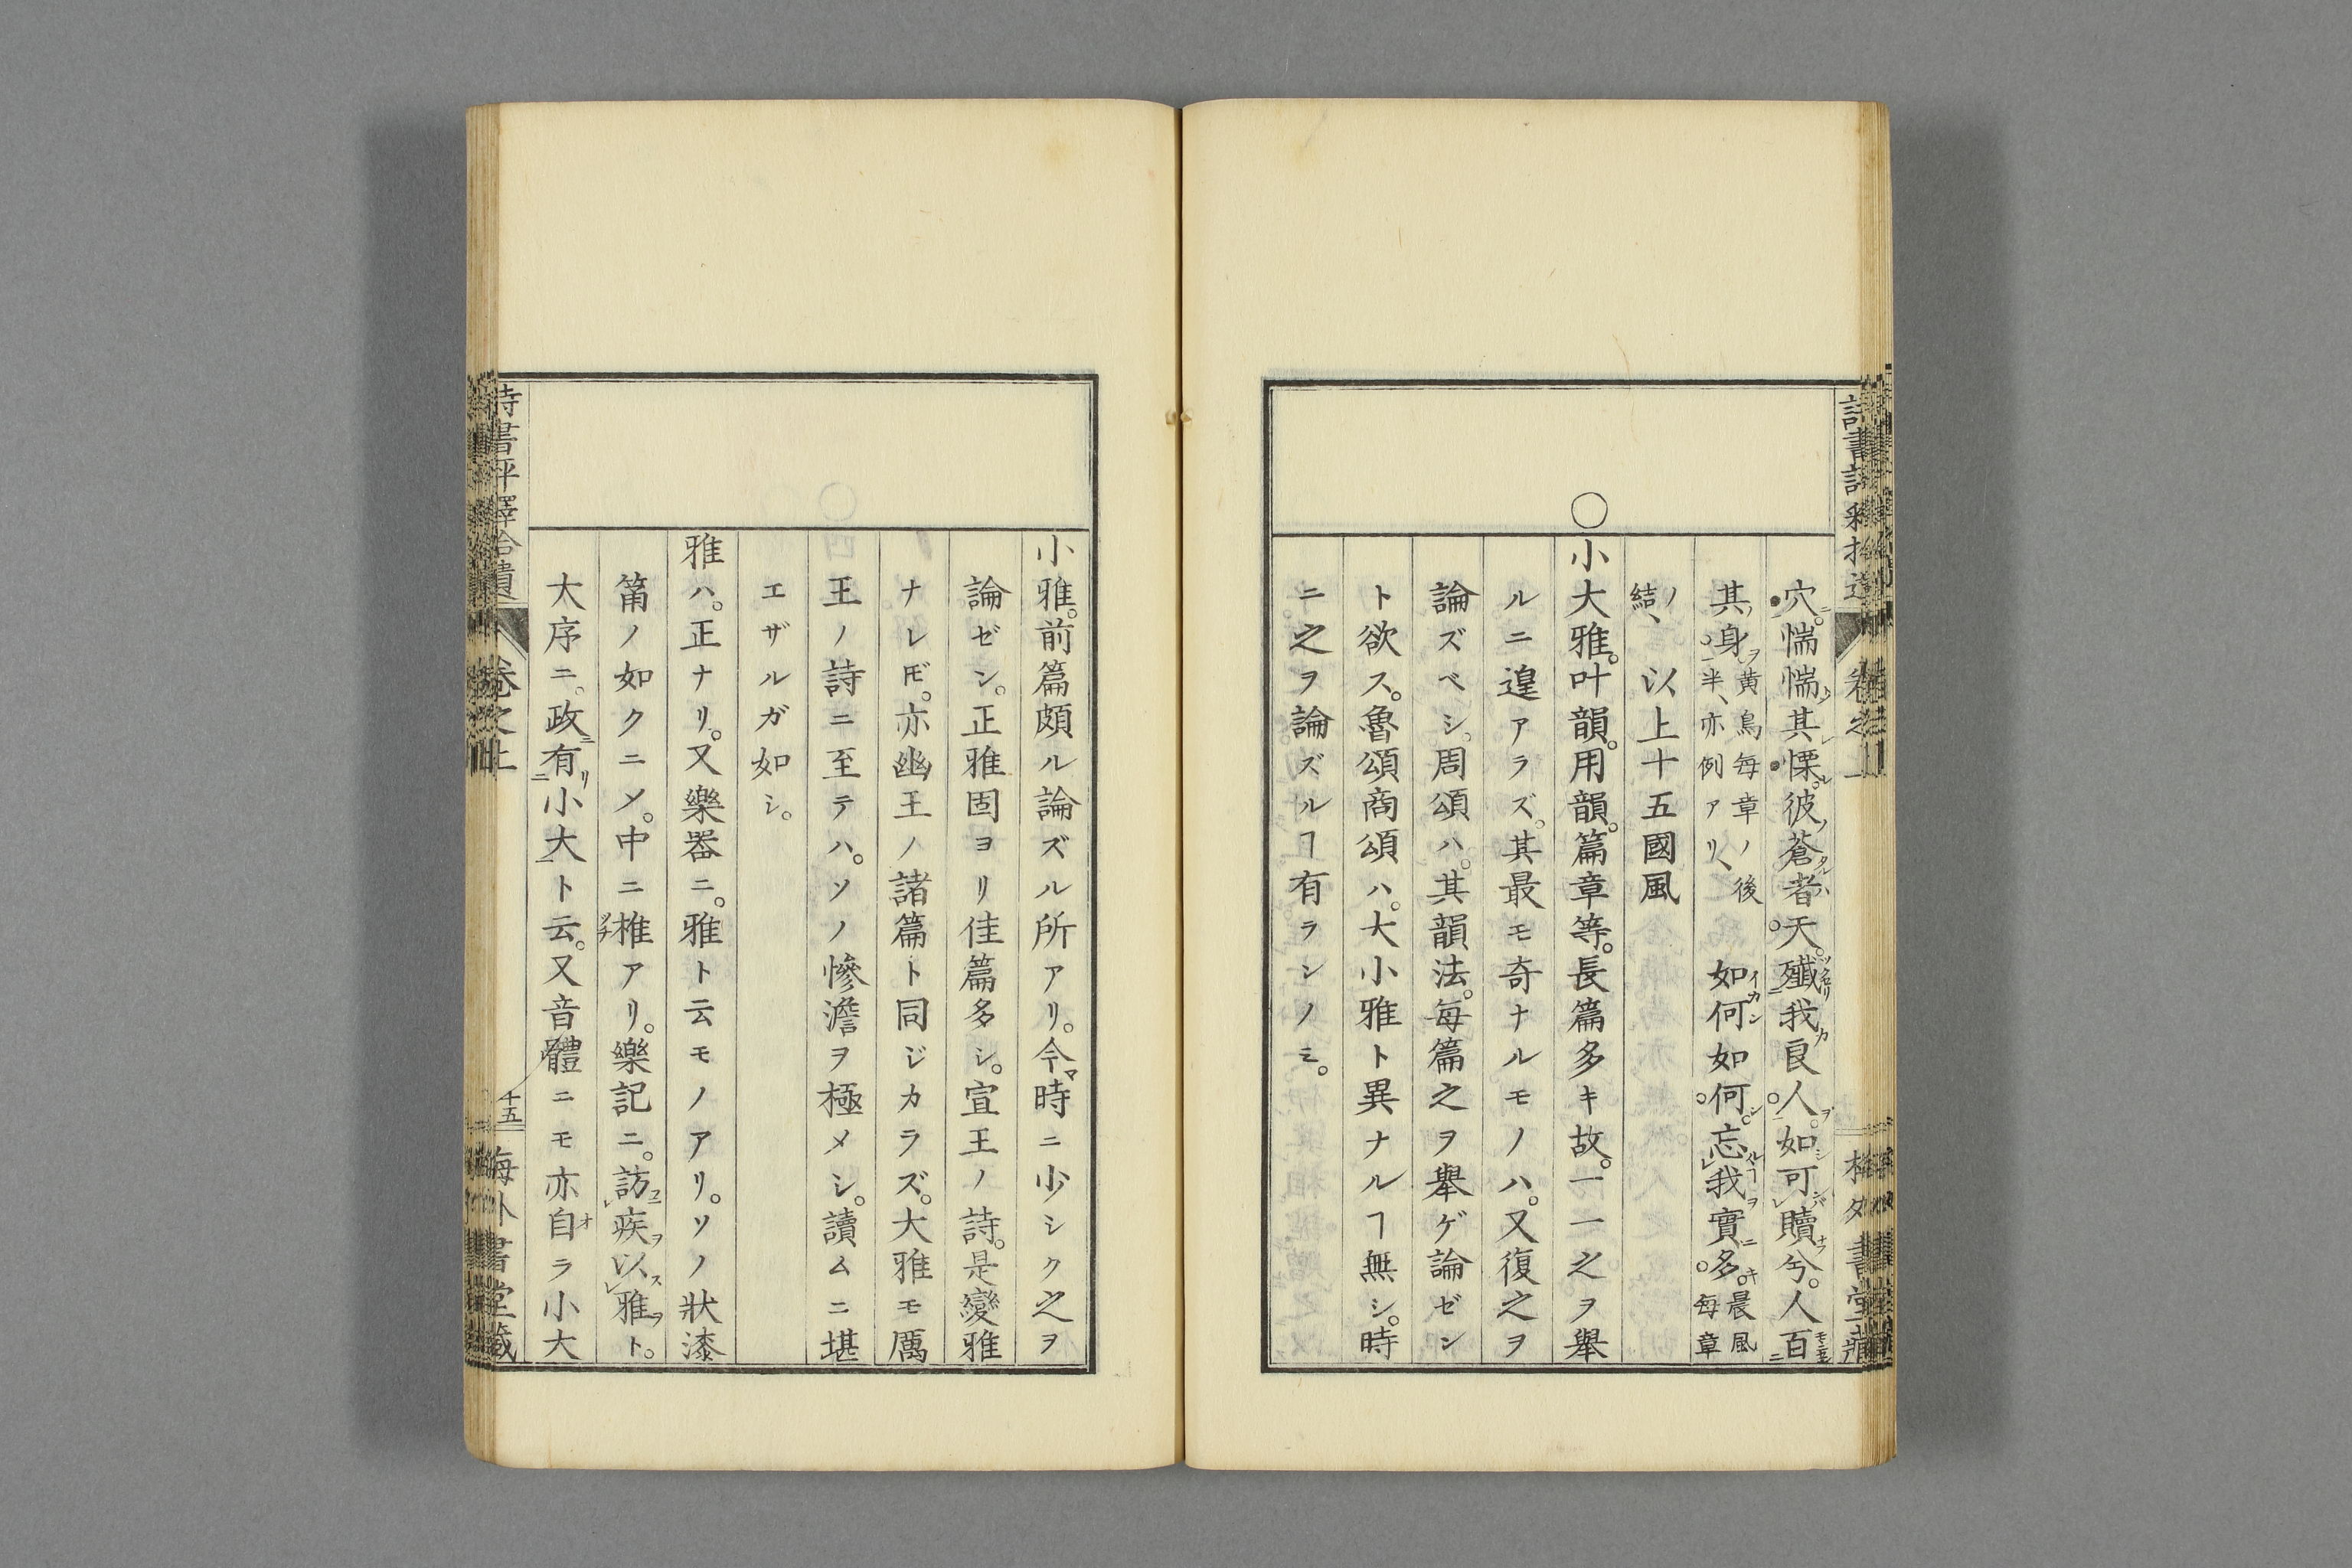 穴。惴惴其慄。彼蒼者天。殱我良人。如可贖兮。人百
其身。黃鳥每章ノ後半、亦例アリ、如何如何。忘我實多。晨風每章
ノ結、以上十五國風
○小大雅。叶韻。用韻。篇章等。長篇多キ故。一一之ヲ舉
ルニ遑アラズ。其最モ奇ナルモノハ。又復之ヲ
論ズベシ。周頌ハ。其韻法。每篇之ヲ舉ゲ論ゼン
ト欲ス。魯頌商頌ハ。大小雅ト異ナルヿ無シ。時
ニ之ヲ論ズルヿ有ラシノミ。
小雅。前篇頗ル論ズル所アリ。今時ニ少シク之ヲ
論ゼン。正雅固ヨリ佳篇多シ。宣王ノ詩。是變雅
ナレㇳモ。亦幽王ノ諸篇ト同ジカラズ。大雅モ厲
王ノ詩ニ至テハ。ソノ慘澹ヲ極メシ。讀ムニ堪
エザルガ如シ。
雅ハ。正ナリ。又樂器ニ。雅ト云モノアリ。ソノ狀漆
筩ノ如クニメ。中ニ椎アリ。樂記ニ。訪疾以雅ト。
大序ニ。政有小大ト云。又音體ニモ亦自ラ小大
詩書評釋拾遺 卷之上 十五 梅外書堂藏